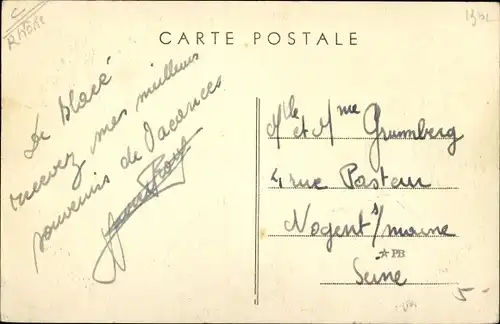 Rhône
1391
CARTE POSTALE
De Blacé
recevez mes meilleurs
souvenirs de Vacances
Mlle et Mme Grumberg
4 rue Pasteur
Nogent s/marne
★PB
Seine
5-